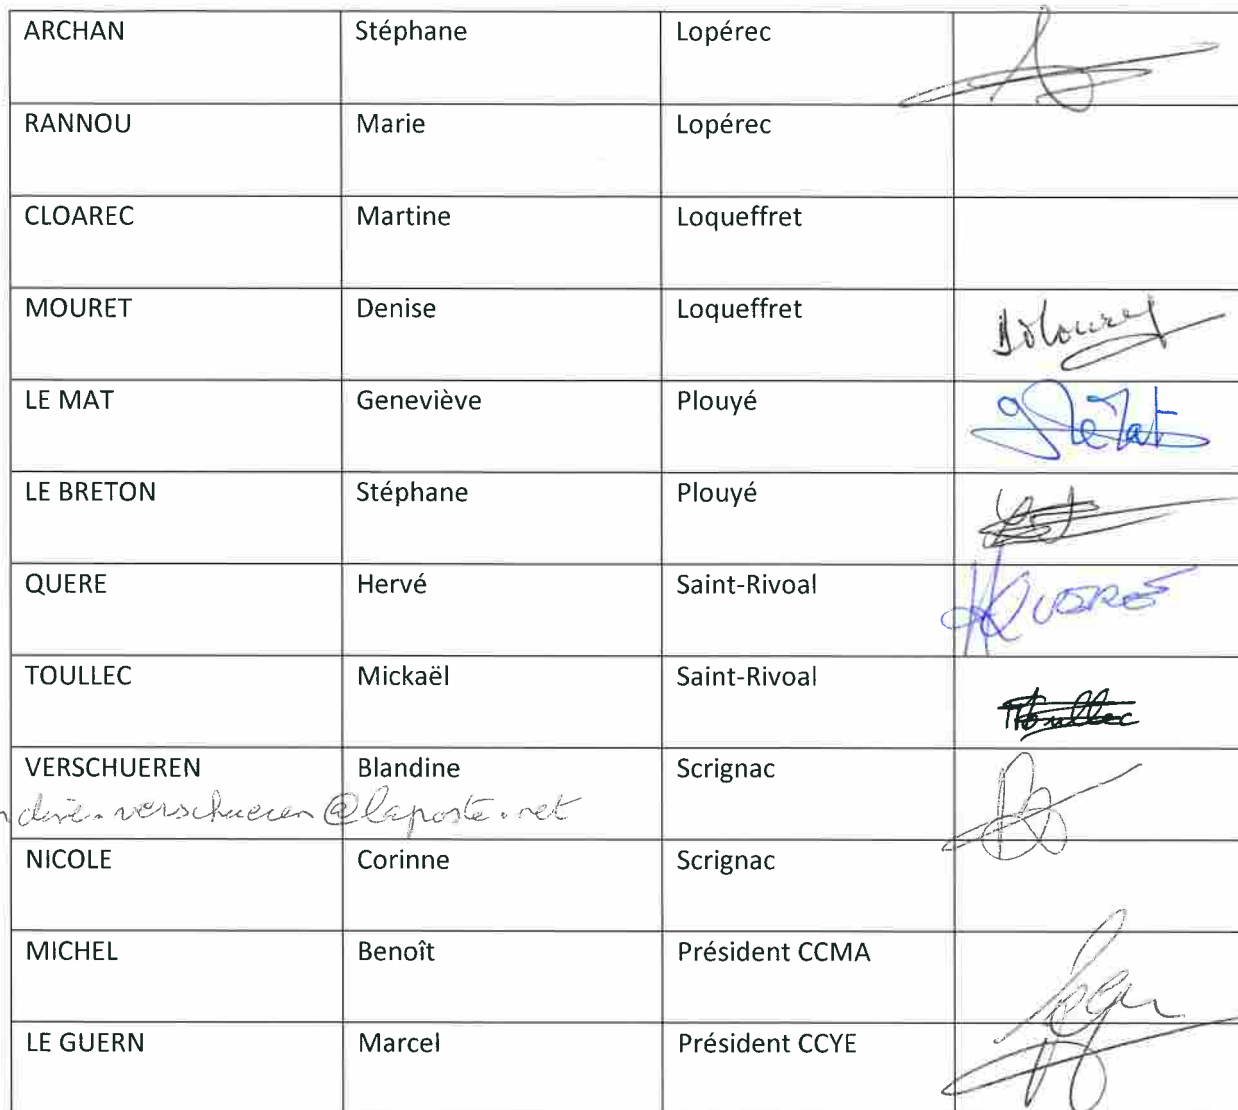 ARCHAN Stéphane Lopérec
RANNOU Marie Lopérec
CLOAREC Martine Loqueffret
MOURET Denise Loqueffret
LE MAT Geneviève Plouyé
LE BRETON Stéphane Plouyé
QUERE Hervé Saint-Rivoal HQUERÉ
TOULLEC Mickaël Saint-Rivoal Toullec
VERSCHUEREN Blandine Scrignac
ndine.verschueren@laposte.net
NICOLE Corinne Scrignac
MICHEL Benoît Président CCMA
LE GUERN Marcel Président CCYE